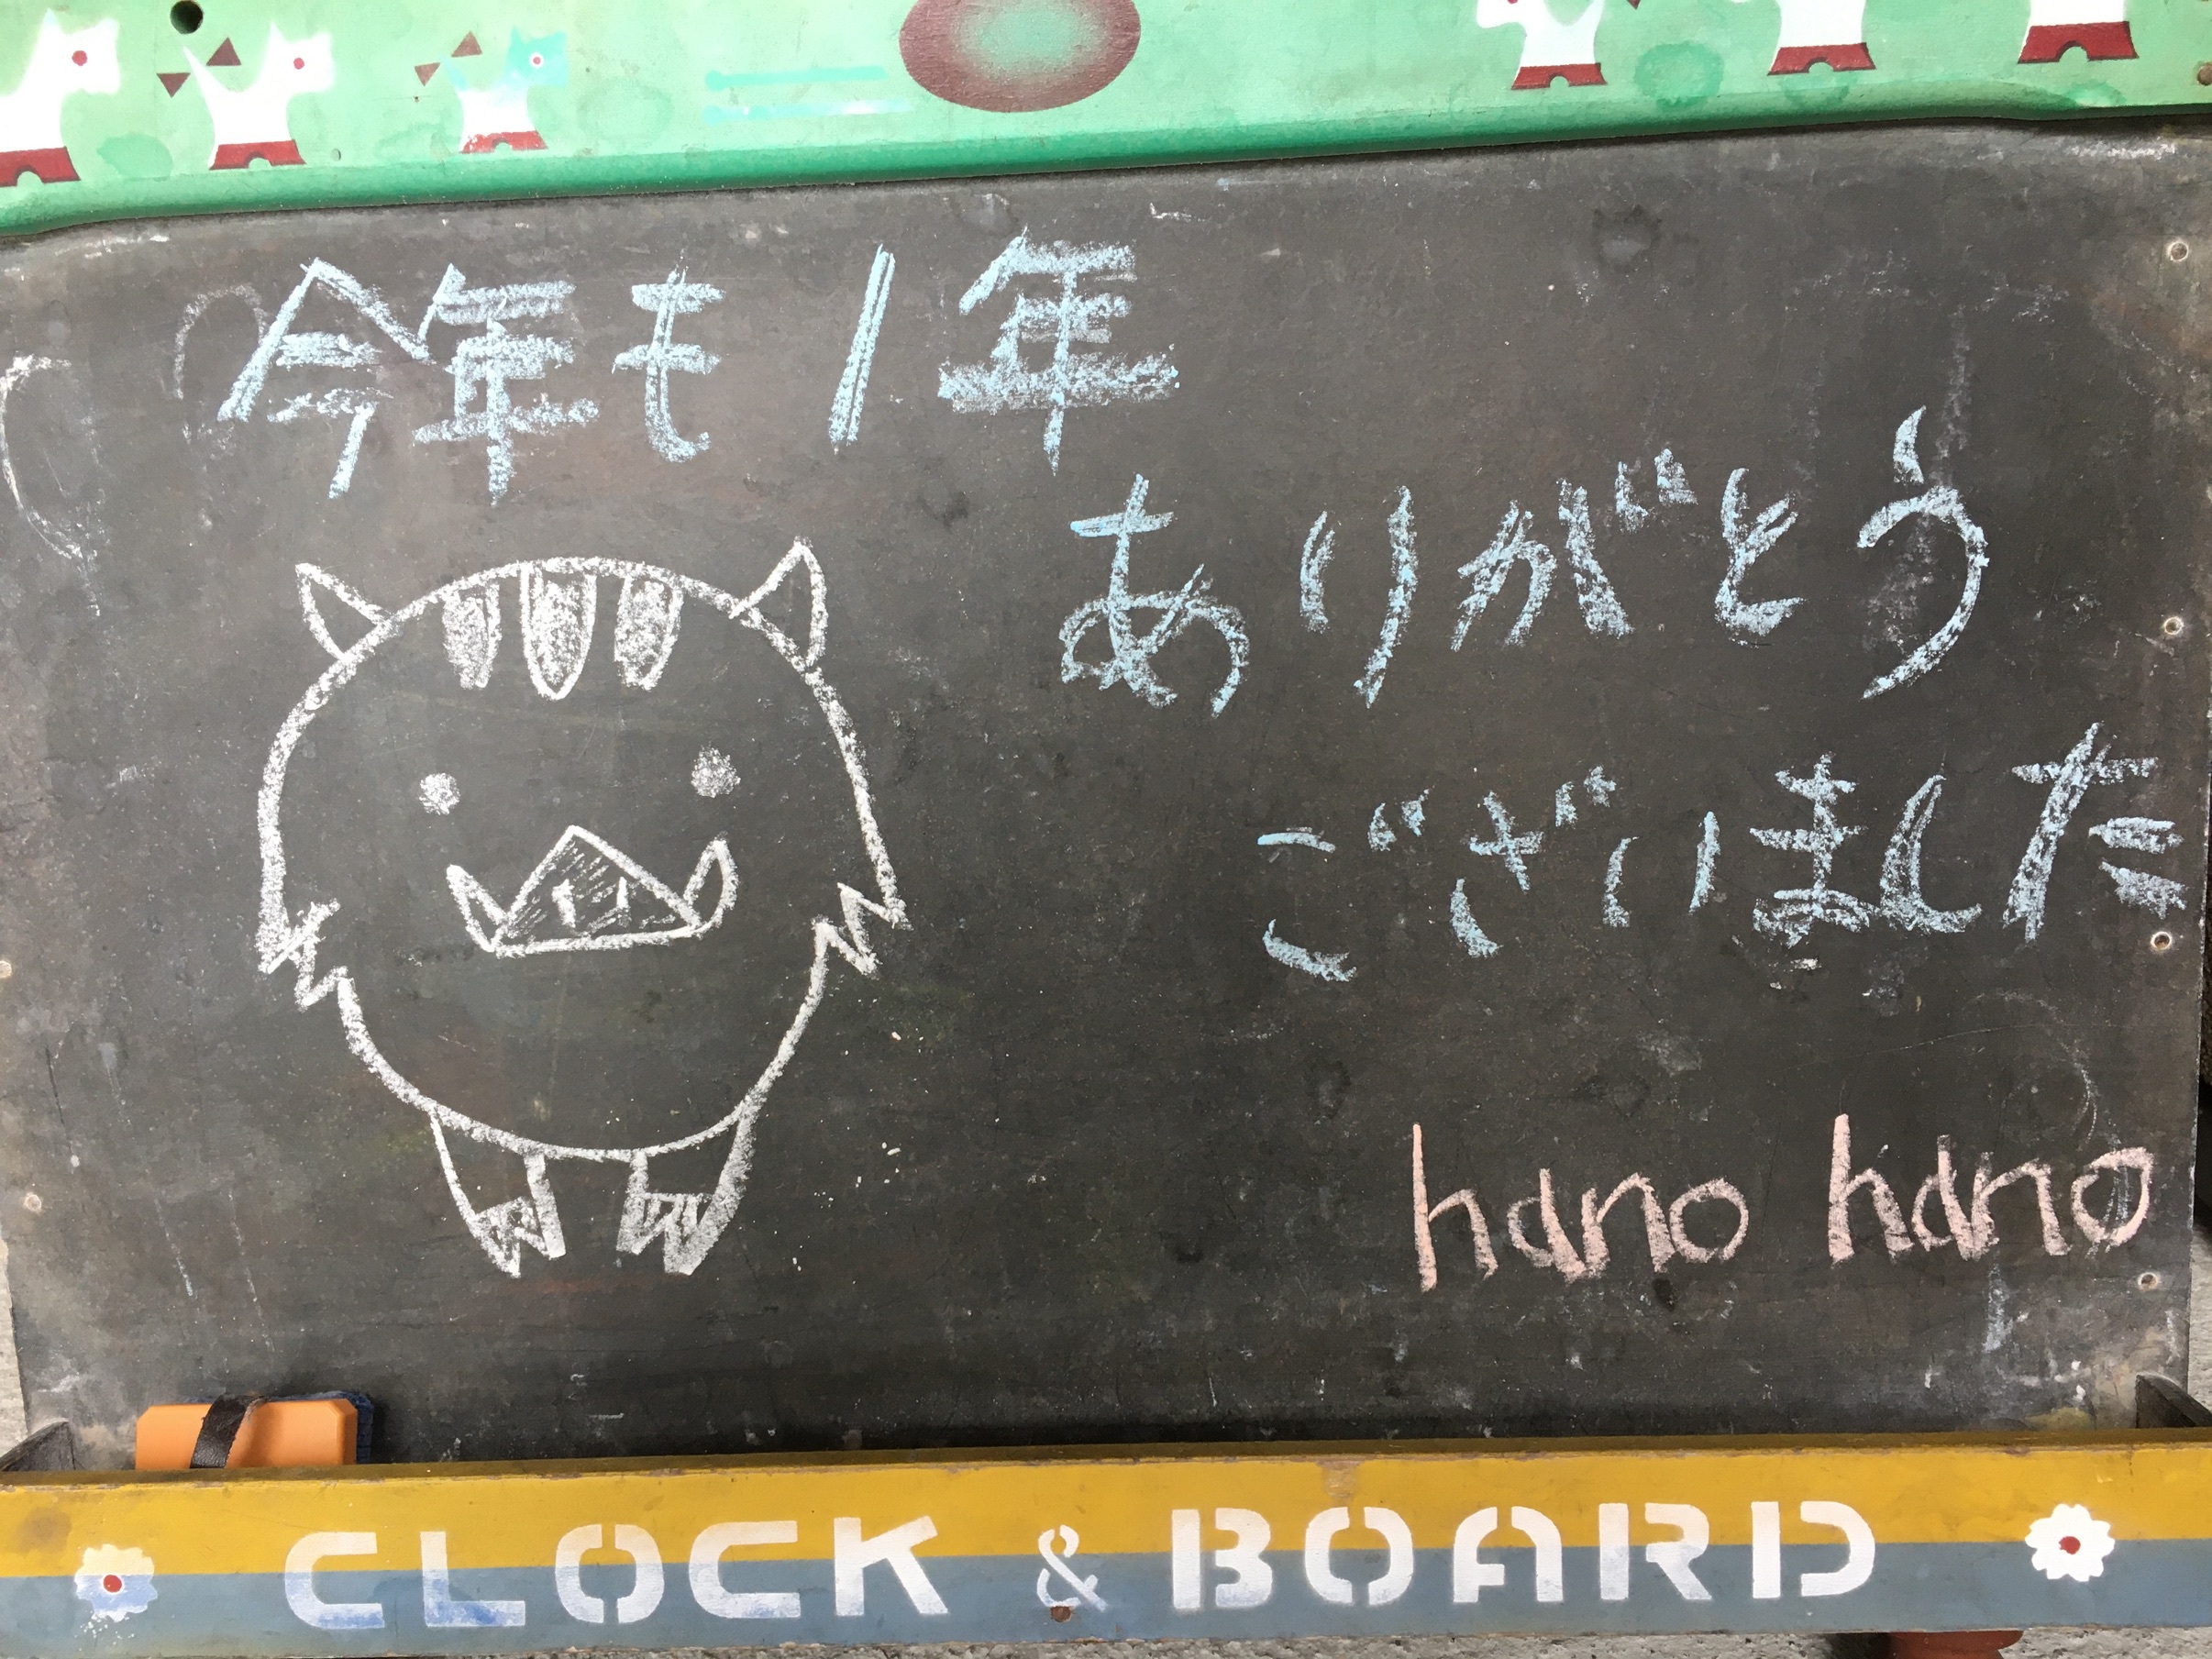 今年も1年
ありがとう
ございました
hano hano
CLOCK & BOARD